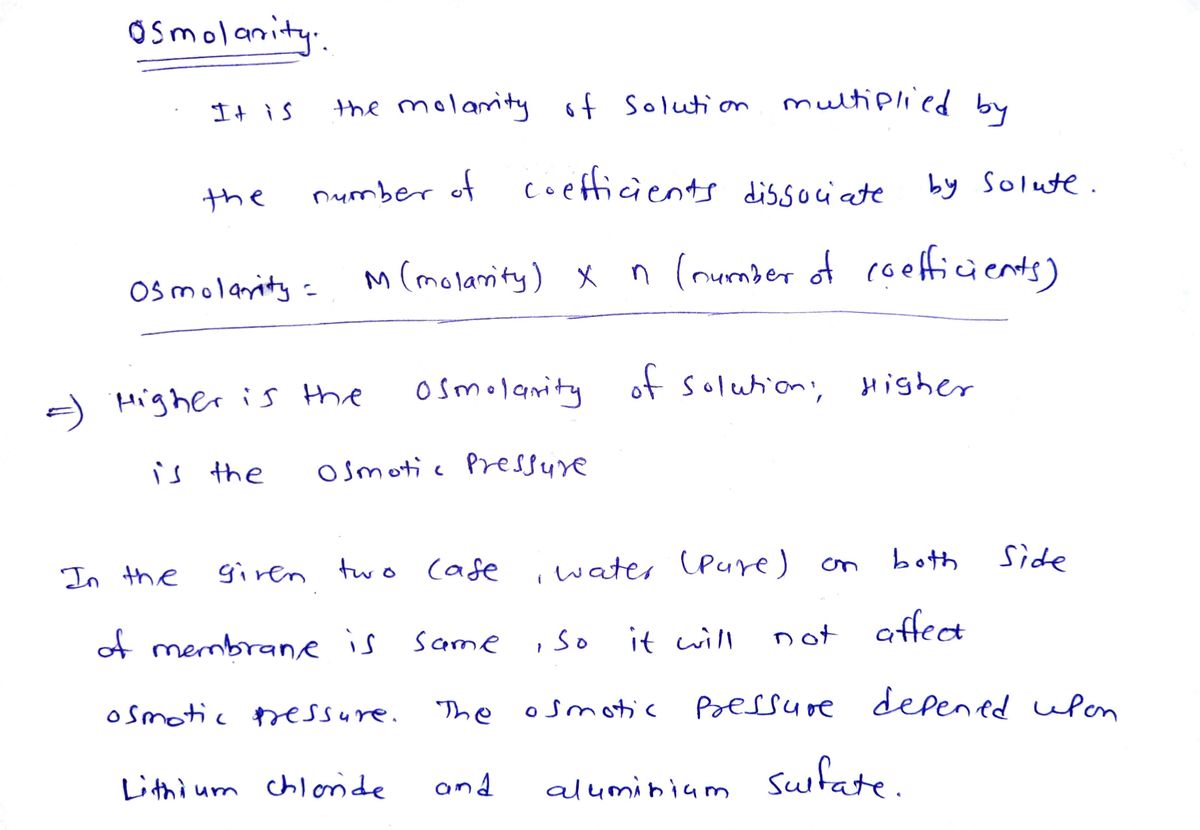 Osmolarity:.
It is the molarity of solution multiplied by
the number of coefficients dissociate by solute.
Osmolarity = M (molarity) x n (number of coefficients)
=) Higher is the osmolarity of solution:, Higher
is the osmotic Pressure
In the given two case, water (Pure) on both side
of membrane is same, so it will not affect
osmotic pressure. The osmotic Pressure depened upon
Lithium chloride and aluminium sulfate.